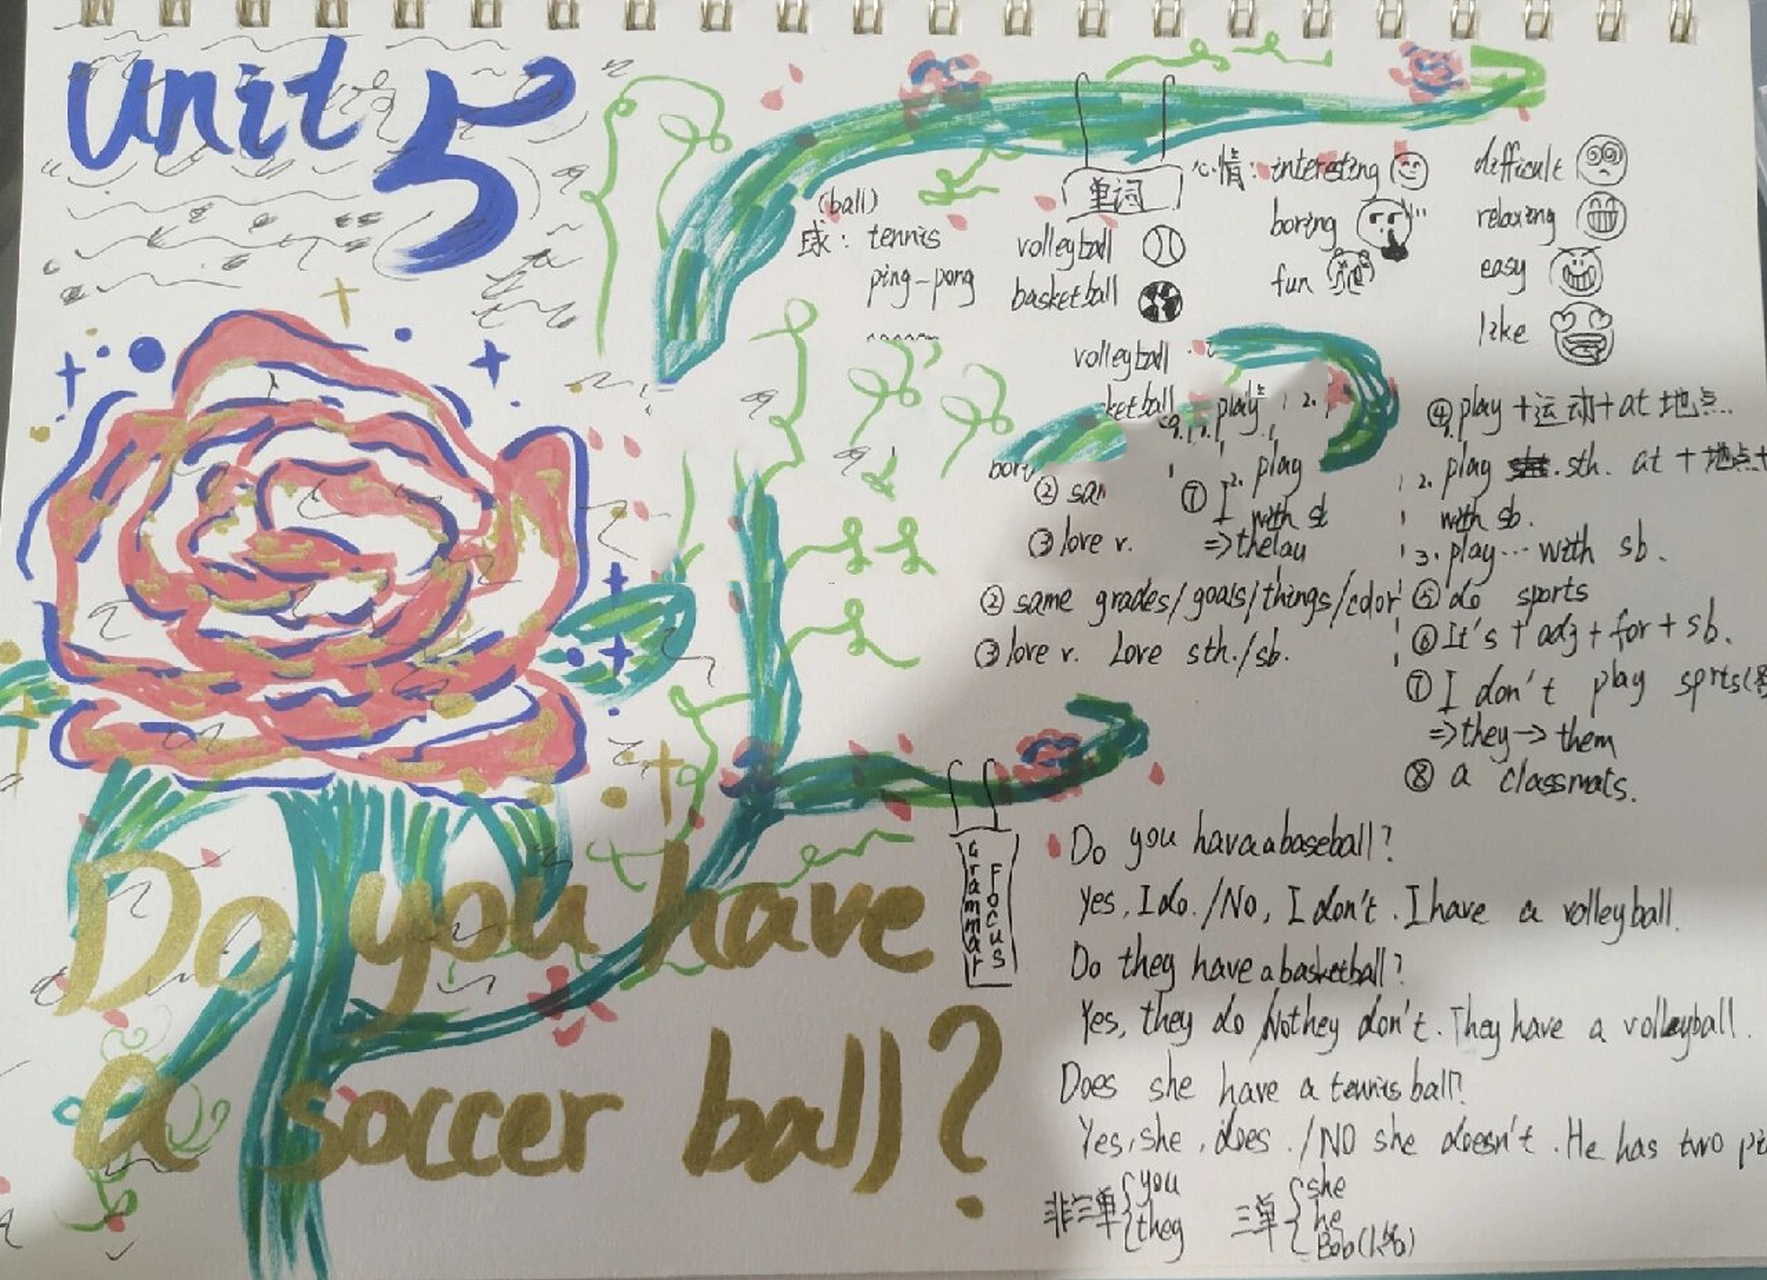 Unit 5
Do you have
a soccer ball?
单词
(ball)
球: tennis
ping-pong
volleyball
basketball
volleyball
ketball
心情: interesting
boring
fun
difficult
relaxing
easy
like
play 2.
2. play
② sa
① I
with s
③ love v.
② same grades/goals/things/color
③ love v. Love sth./sb.
④ play+运动+at 地点.
2. play sth. at+地点+
with sb.
3. play...with sb.
⑤ do sports
⑥ It's + adj + for + sb.
⑦ I don't play sprts(
⇒they→them
⑧ a classmats.
Grammar Focus
Do you havaabaseball?
Yes, I do./No, I don't. I have a volleyball.
Do they have a basketball?
Yes, they do /Nothey don't. They have a volleyball.
Does she have a tennis ball?
Yes, she, does./NO she doesn't. He has two pi
非三单{you
they
三单{she
he
Bob